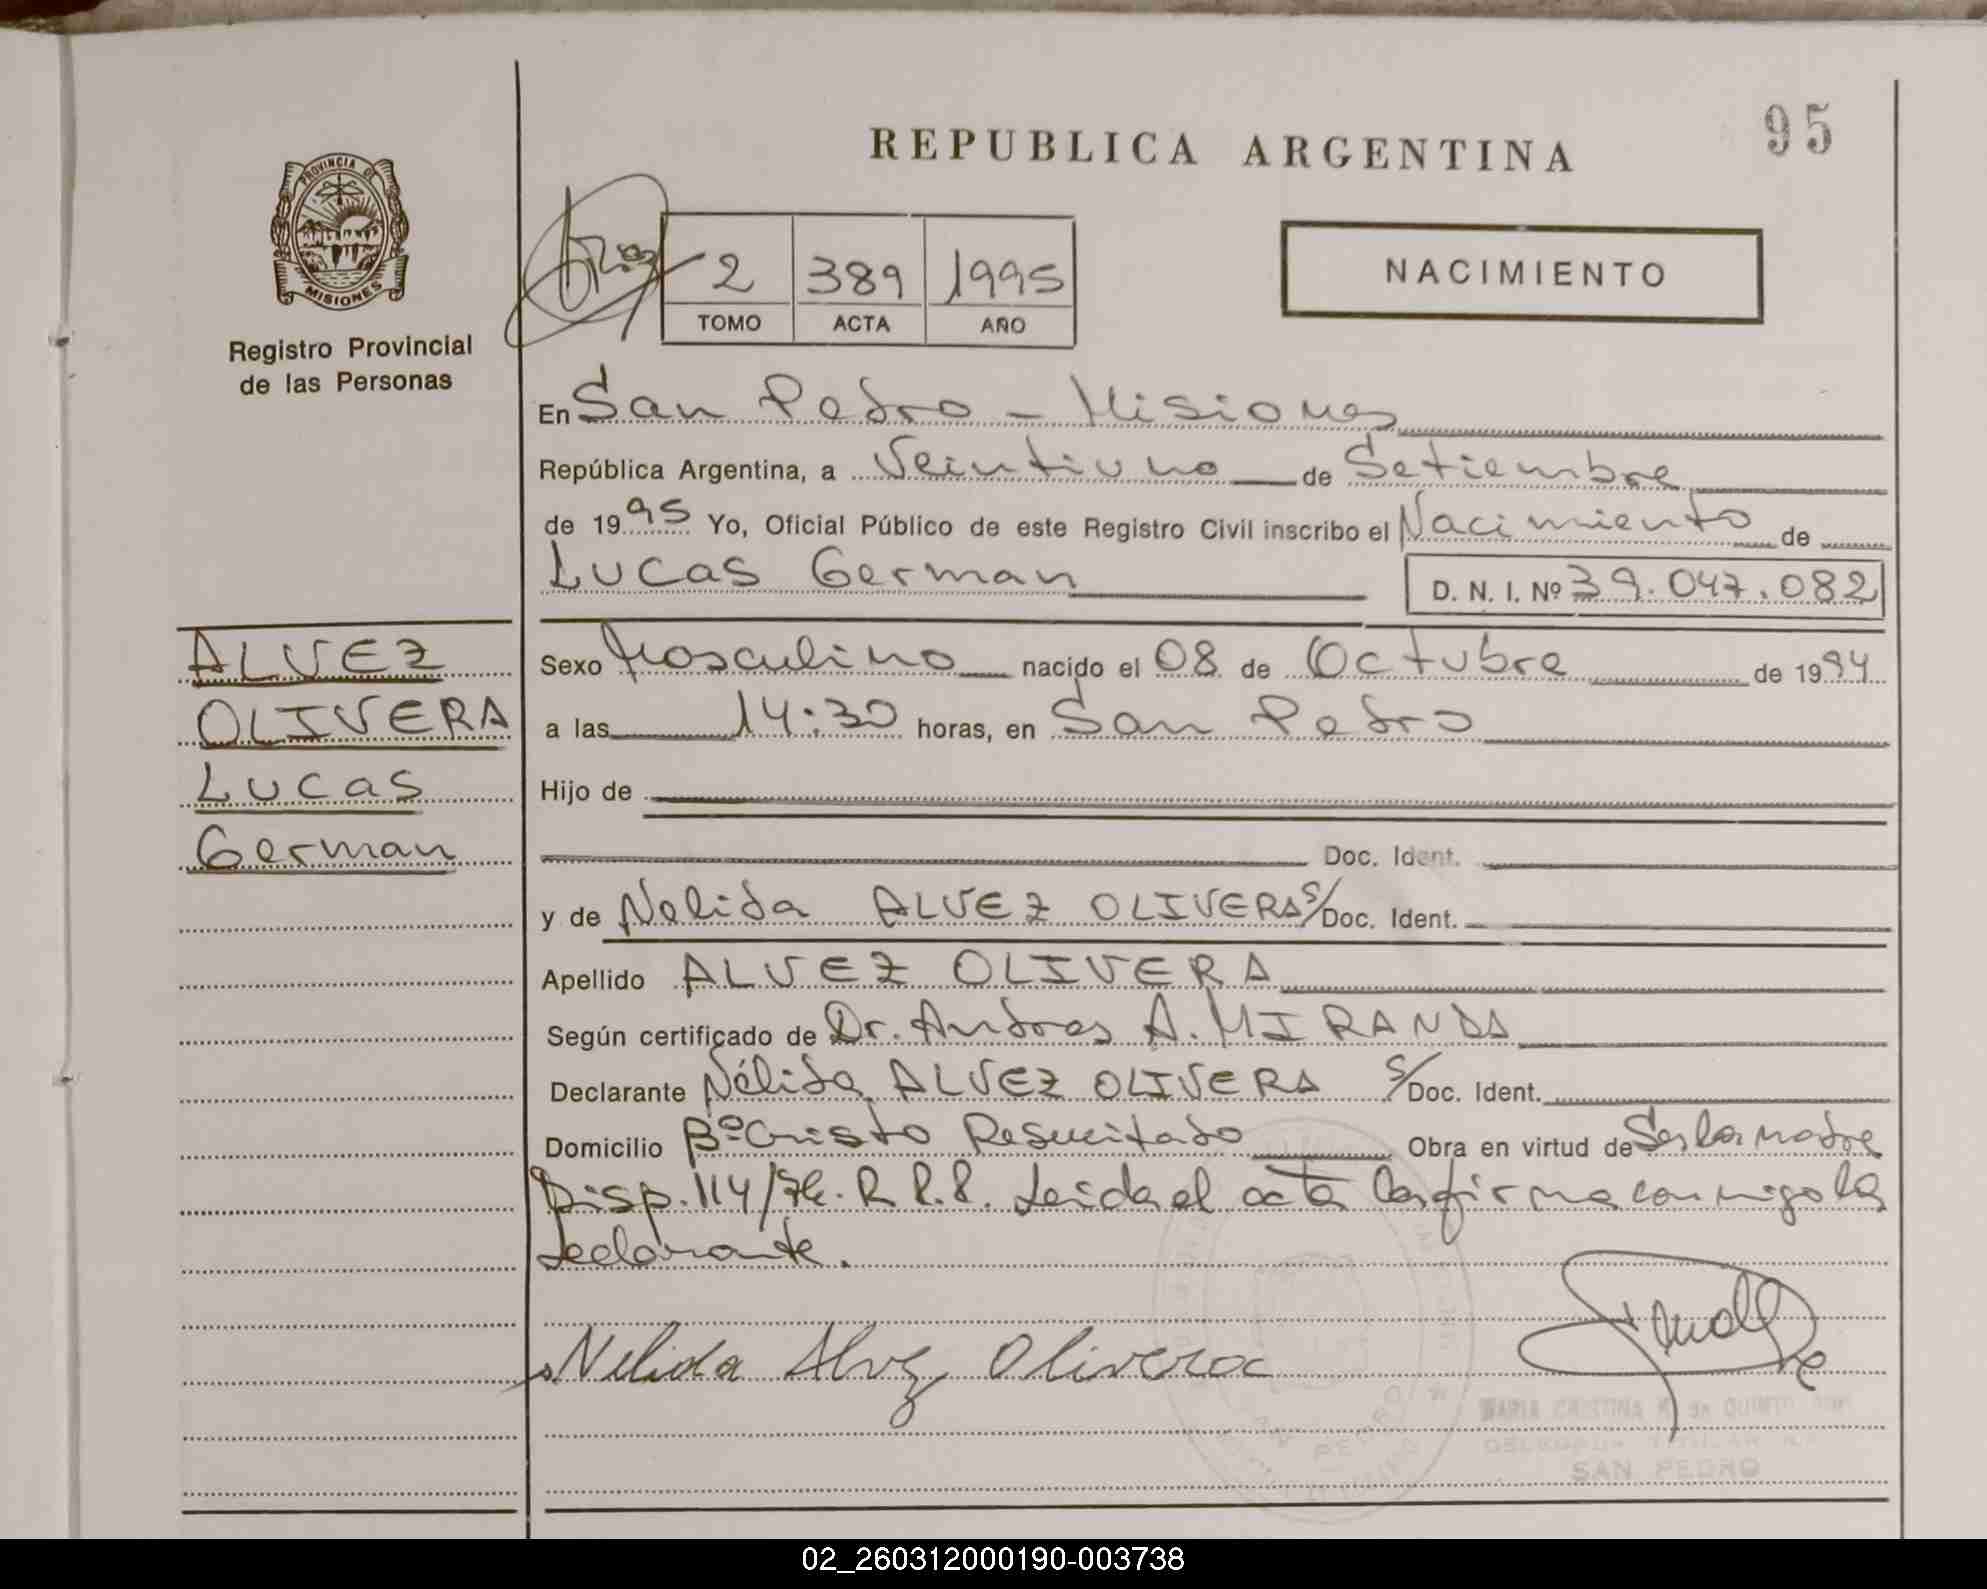 95
REPUBLICA ARGENTINA
PROVINCIA DE
MISIONES
Registro Provincial
de las Personas
2 389 1995
TOMO ACTA AÑO
NACIMIENTO
En San Pedro - Misiones
República Argentina, a Veintiuno de Setiembre
de 1995 Yo, Oficial Público de este Registro Civil inscribo el Nacimiento de
Lucas German D. N. I. Nº 39.047.082
ALVEZ
OLIVERA
Lucas
German
Sexo Masculino nacido el 08 de Octubre de 1994
a las 14:30 horas, en San Pedro
Hijo de
Doc. Ident.
y de Nelida ALVEZ OLIVERA s/Doc. Ident.
Apellido ALVEZ OLIVERA
Según certificado de Dr. Andres A. MIRANDA
Declarante Nélida ALVEZ OLIVERA s/Doc. Ident.
Domicilio Bº Cristo Resucitado Obra en virtud de Ser la madre
Disp. 114/ R.P.P. Leida el acta la firma conmigo la
declarante.
Nelida Alvez Olivera
MARIA CRISTINA
DELEGADA TITULAR
SAN PEDRO
02_260312000190-003738